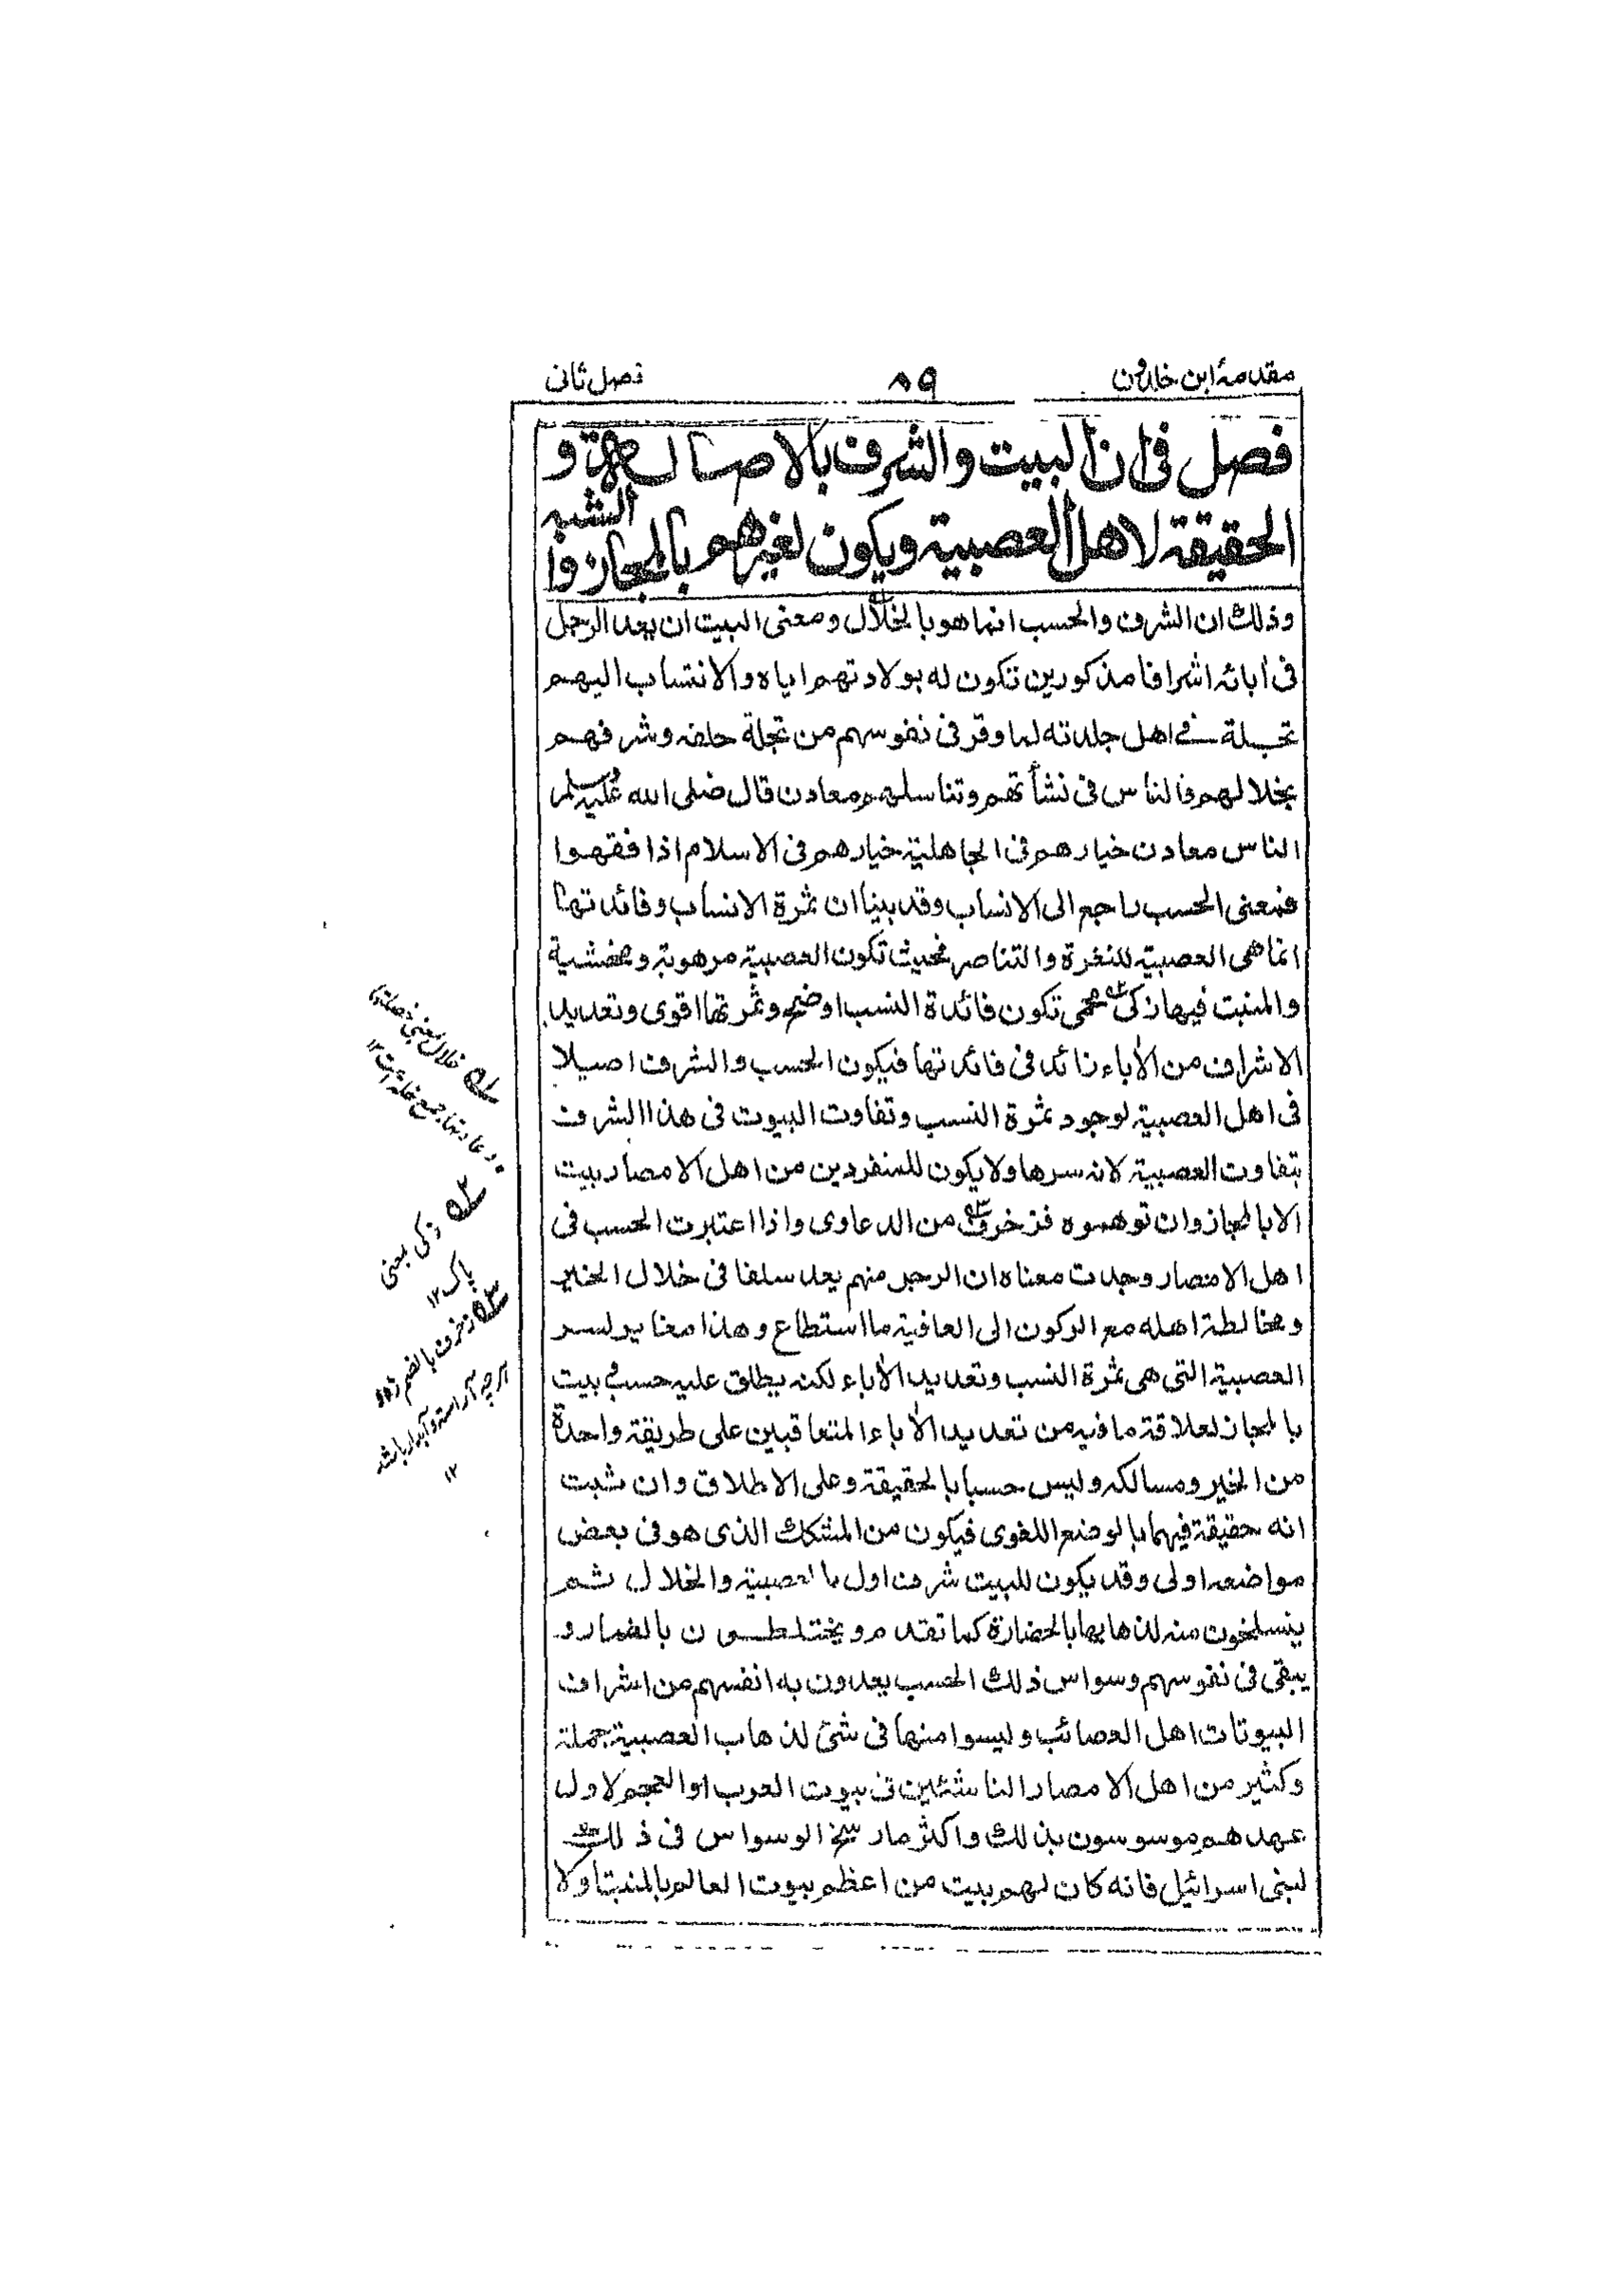 مقدمهٔ ابن خلدون
٨٩
فصل ثانی
فصل فی ان البیت والشرف بالاصالة و
الحقیقة لاهل العصبیة ویکون لغیرهم بالمجاز والشبه
وذلك ان الشرف والحسب انما هو بالخلال ومعنی البیت ان یعد الرجل
فی اٰبائه اشرافا مذکورین تکون له بولادتهم ایاه والانتساب الیهم
تجلة فے اهل جلدته لما وقر فی نفوسهم من تجلة حلفه وشرفهم
بخلالهم فالناس فی نشأتهم وتناسلهم معادن قال صلی الله علیه وسلم
الناس معادن خیارهم فی الجاهلیة خیارهم فی الاسلام اذا فقهوا
فمعنی الحسب راجع الی الانساب وقد بینا ان ثمرة الانساب وفائدتها
انما هی العصبیة للنغرة والتناصر فحیث تکون العصبیة مرهوبة ومخشیة
والمنبت فیها زکی محمی تکون فائدة النسب اوضح وثمرتها اقوی وتعدید
الاشراف من الاٰباء زائد فی فائدتها فیکون الحسب والشرف اصیلا
فی اهل العصبیة لوجود ثمرة النسب وتفاوت البیوت فی هذا الشرف
بتفاوت العصبیة لانه سرها ولا یکون للمنفردین من اهل الامصار بیت
الا بالمجاز وان توهموه فزخرف من الدعاوی واذا اعتبرت الحسب فی
اهل الامصار وجدت معناه ان الرجل منهم یعد سلفا فی خلال الخیر
ومخالطة اهله مع الرکون الی العافیة ما استطاع وهذا مغایر لسر
العصبیة التی هی ثمرة النسب وتعدید الاٰباء لکنه یطلق علیه حسب بیت
بالمجاز لعلاقة ما فیه من تعدید الاٰباء المتعاقبین علی طریقة واحدة
من الخیر ومسالکه ولیس حسبا بالحقیقة وعلی الاطلاق وان ثبت
انه حقیقة فیهما بالوضع اللغوی فیکون من المشکك الذی هو فی بعض
مواضعه اولی وقد یکون للبیت شرف اول بالعصبیة والخلال ثم
ینسلخون منه لذهابها بالحضارة کما تقدم ویختلطون بالغمار و
یبقی فی نفوسهم وسواس ذلك الحسب یعدون به انفسهم من اشراف
البیوتات اهل العصائب ولیسوا منها فی شئ لذهاب العصبیة جملة
وکثیر من اهل الامصار الناشئین فی بیوت العرب او العجم لاول
عهدهم موسوسون بذلك واکثر ما رسخ الوسواس فی ذلك
لبنی اسرائیل فانه کان لهم بیت من اعظم بیوت العالم بالمنبت اولا
۱ه خلال بمعنی خصلتها
وعادتها جمع خلة است ١٢
۲ه زکی بمعنی
پاک ١٢
۳ه زخرف بالضم زر و
هرچه آراسته و آبدار باشد
١٢